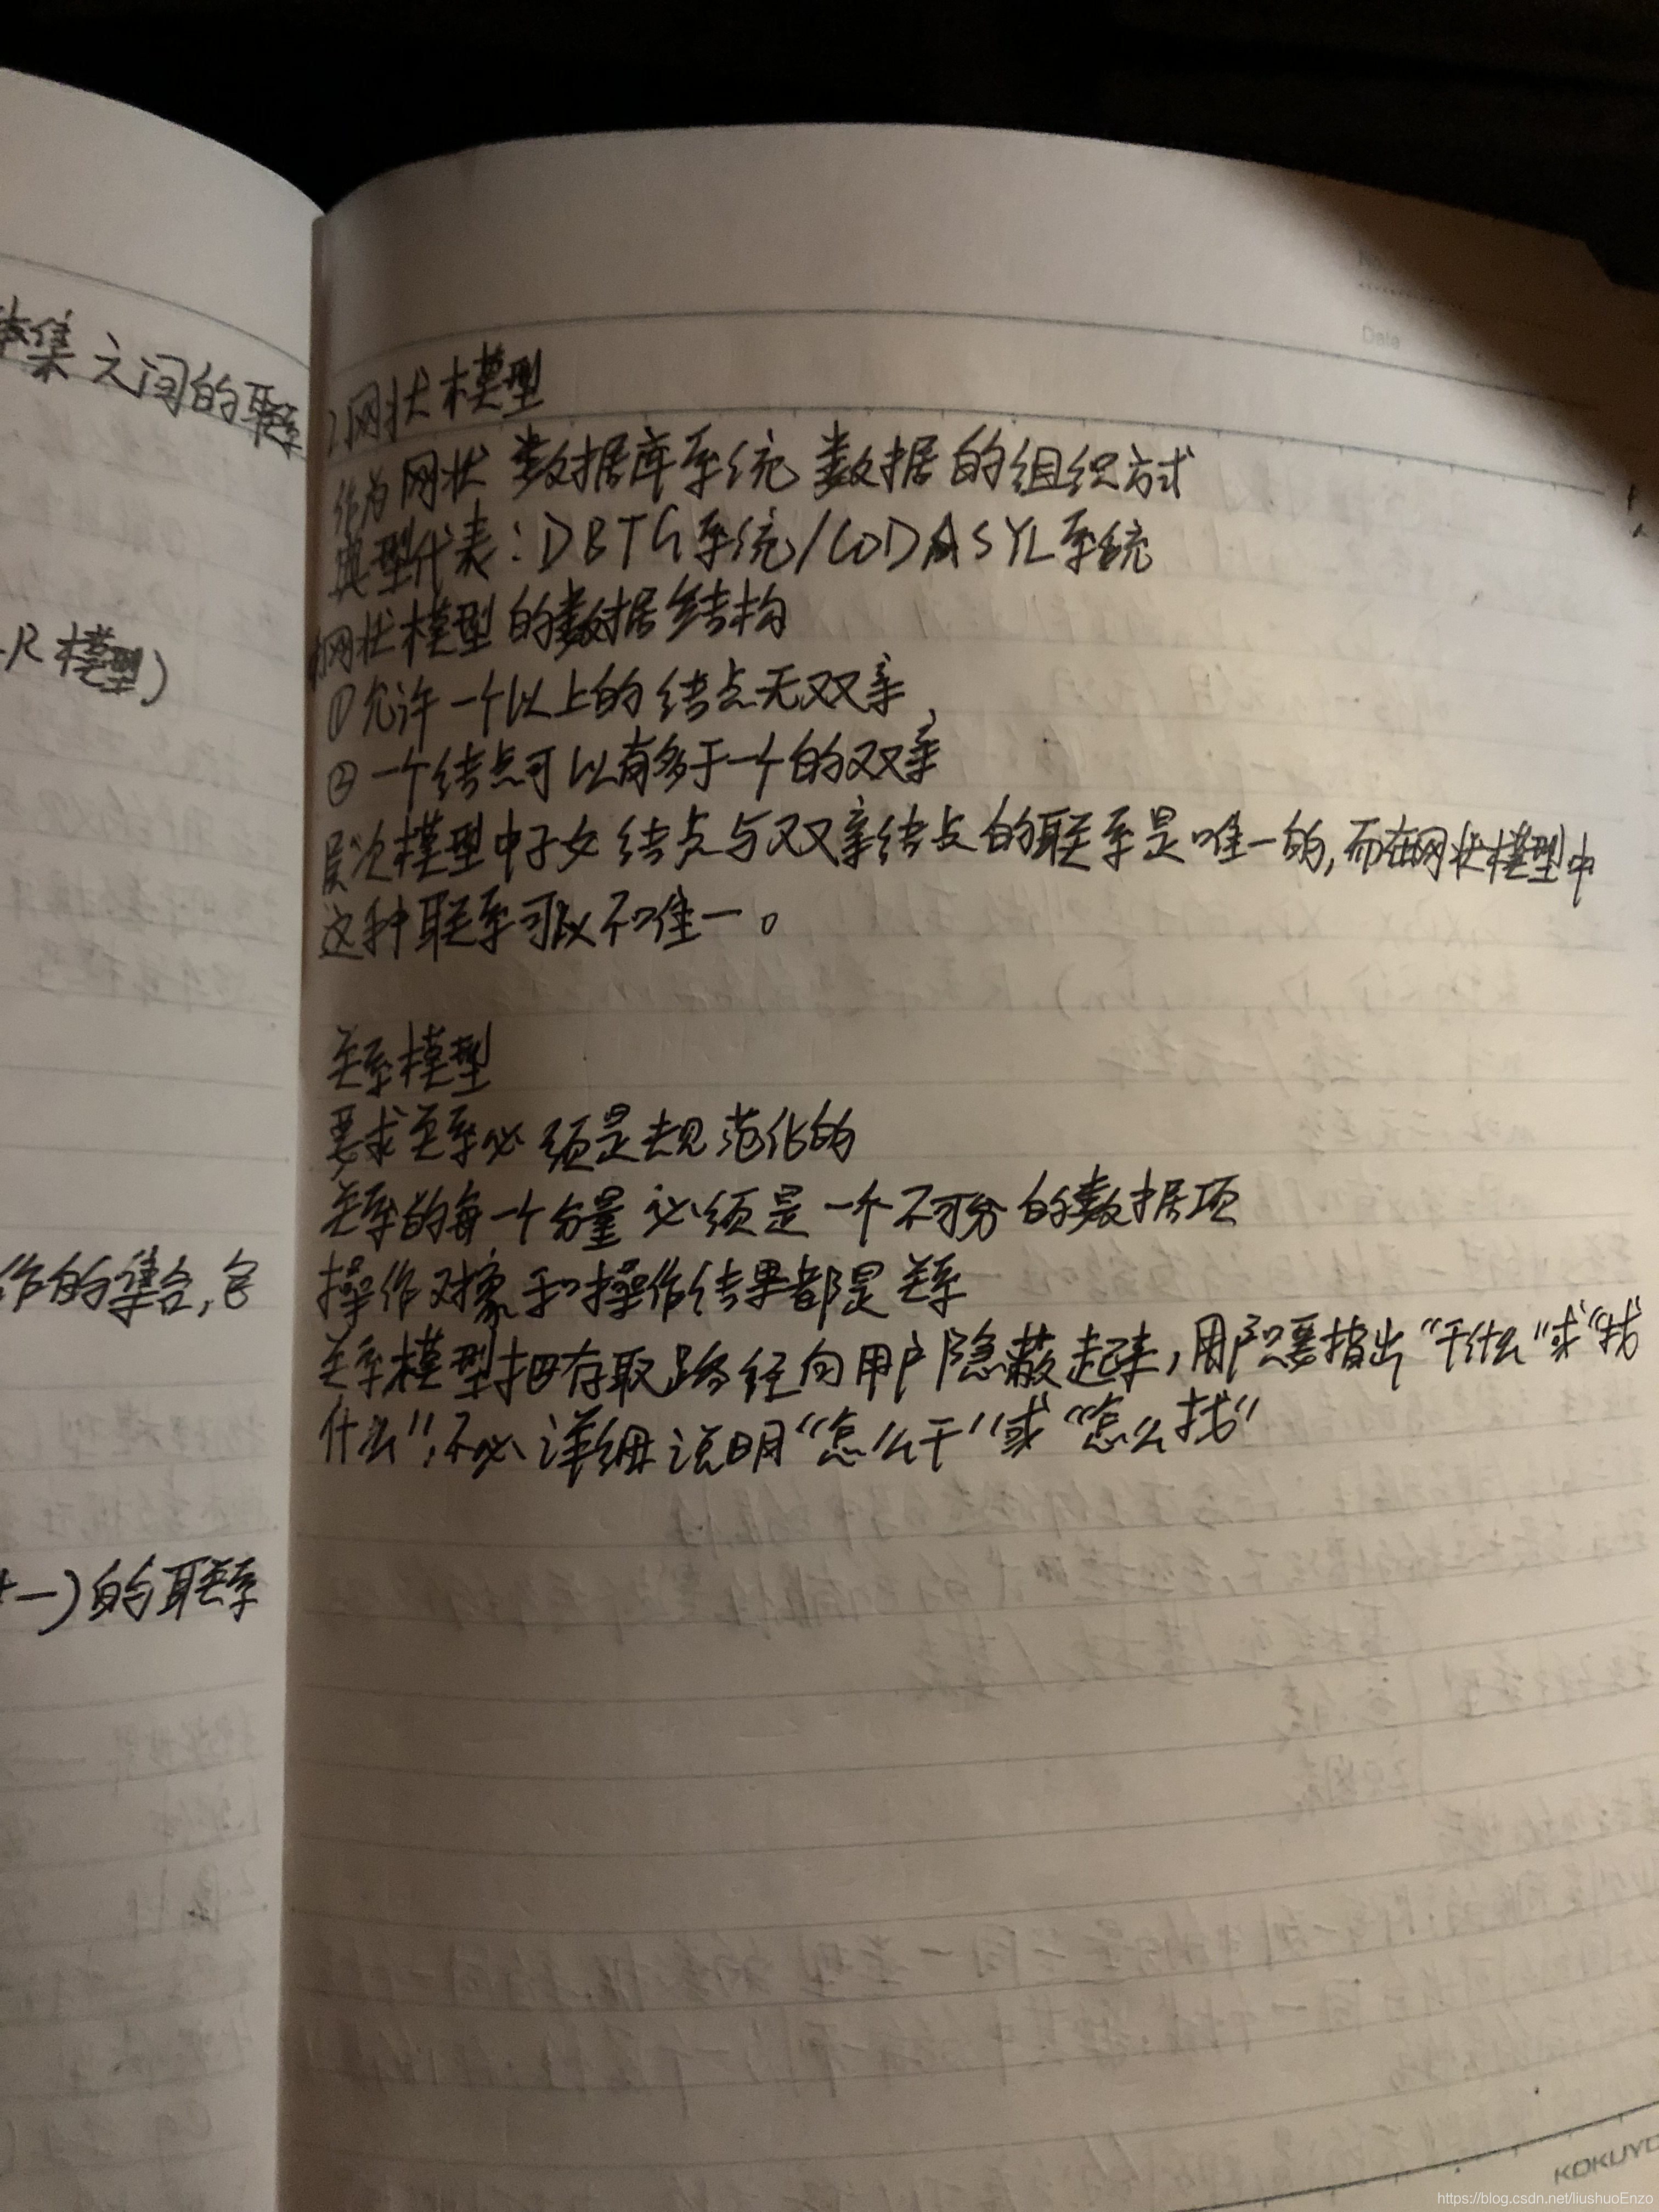 集之间的联系
R模型)
作的集合,包
一)的联系
Date
2.网状模型
作为网状数据库系统数据的组织方式
典型代表:DBTG系统/CODASYL系统
网状模型的数据结构
①允许一个以上的结点无双亲,
②一个结点可以有多于一个的双亲
层次模型中子女结点与双亲结点的联系是唯一的,而在网状模型中
这种联系可以不唯一。
关系模型
要求关系必须是规范化的
关系的每一个分量必须是一个不可分的数据项
操作对象和操作结果都是关系
关系模型把存取路径向用户隐蔽起来,用户只要指出“干什么”或“找
什么”,不必详细说明“怎么干”或“怎么找”
KOKUYO
https://blog.csdn.net/liushuoEnzo